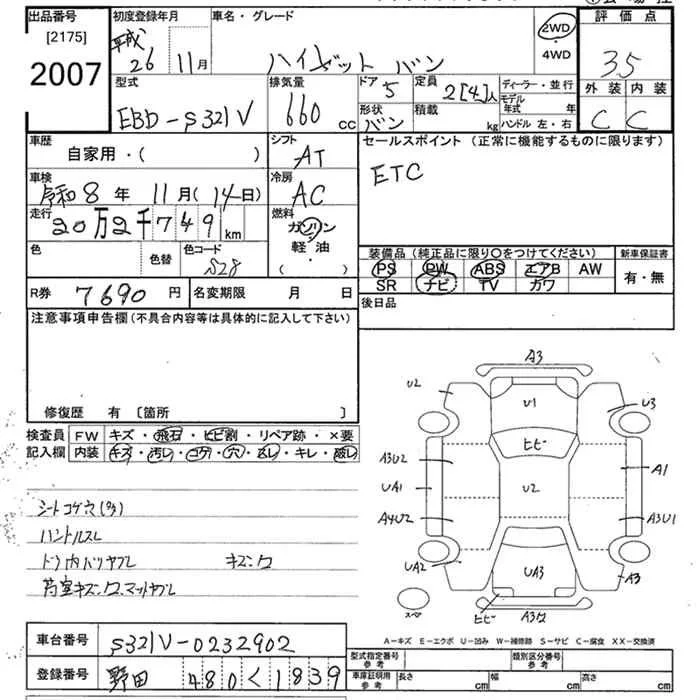 出品番号 初度登録年月 車名・グレード 評価点
[2175]
2007
平成 26 11月 ハイゼット バン 2WD ・ 4WD 35
型式 排気量 ドア 定員 ディーラー・並行 外装 内装
EBD-S321V 660cc 5 2[4]人 モデル年式 年 C C
形状 積載
バン kg ハンドル 左・右
車歴 シフト セールスポイント (正常に機能するものに限ります)
自家用・( ) AT ETC
車検 冷房
令和8年 11月(14日) AC
走行 燃料
20万2千749km ガソリン
軽油
( )
色 色替 色コード
S28
装備品 (純正品に限り○をつけてください) 新車保証書
PS PW ABS エアB AW 有・無
SR ナビ TV ガワ
R券 7690円 名変期限 月 日 後日品
注意事項申告欄(不具合内容等は具体的に記入して下さい)
修復歴 有 〔箇所 〕
検査員 FW キズ・飛石・ヒビ割・リペア跡・×要
記入欄 内装 キズ・汚レ・コゲ・穴・スレ・キレ・破レ
シートコゲ穴
ハンドルスレ
キズ
A3
U2 U1 U3
ヒビ
A3U2 A1
UA1 U2
A4U2 A3U1
UA2 UA3 A3
ヒビ
スペア
A-キズ E-エクボ U-凹み W-補修跡 S-サビ C-腐食 XX-交換済
車台番号 S321V-0232902
登録番号 野田 480 く 1839
型式指定番号 参考 類別区分番号 参考
車庫証明用 参考 長さ cm 幅 cm 高さ cm